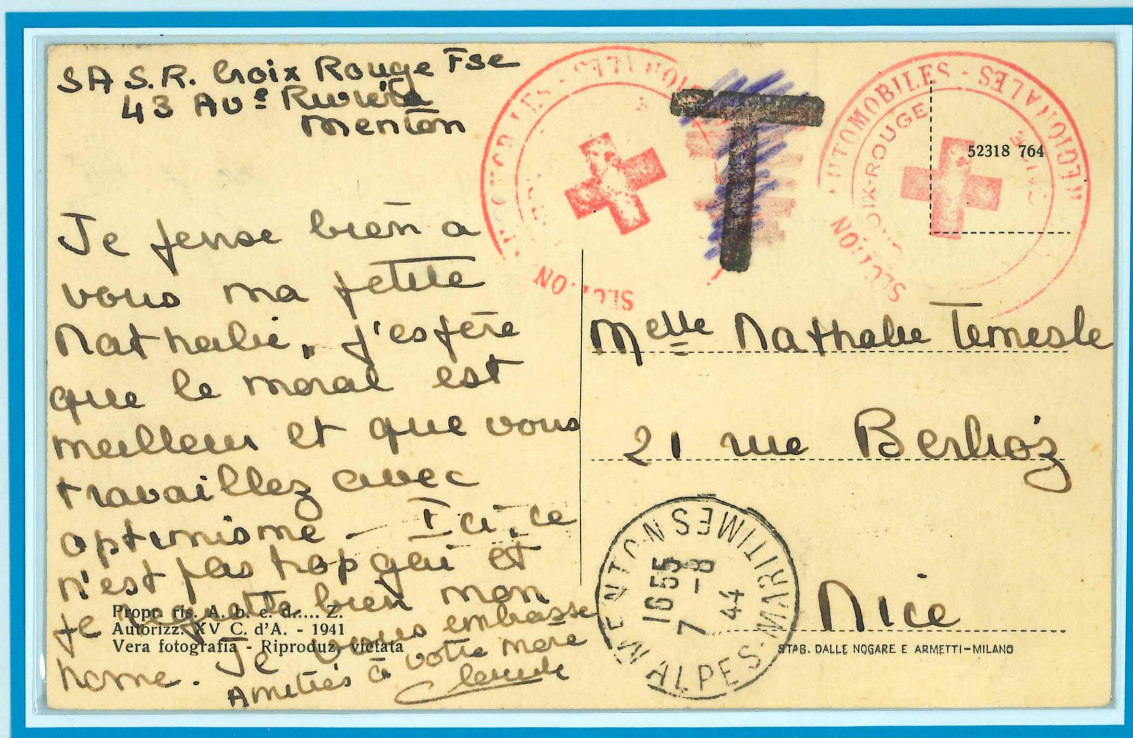 SA S.R. Croix Rouge Fse
43 Ave Riviera
Menton
Je pense bien a
vous ma petite
Nathalie, j'espère
que le moral est
meilleur et que vous
travaillez avec
optimisme - Ici, ce
n'est pas trop gai et
je regrette bien mon
home. Je vous embrasse
Amitiés à votre mère
Claude
Propr. ris. A. b. c. d..... Z.
Autorizz. XV C. d'A. - 1941
Vera fotografia - Riproduz. vietata
SECTION AUTOMOBILES - RÉGIONALES
T
SECTION AUTOMOBILES - RÉGIONALES
CROIX-ROUGE
52318 764
Melle Nathalie
21 rue Berlioz
Nice
MENTON ALPES-MARITIMES
16 55
7 -8
44
STAB. DALLE NOGARE E ARMETTI-MILANO